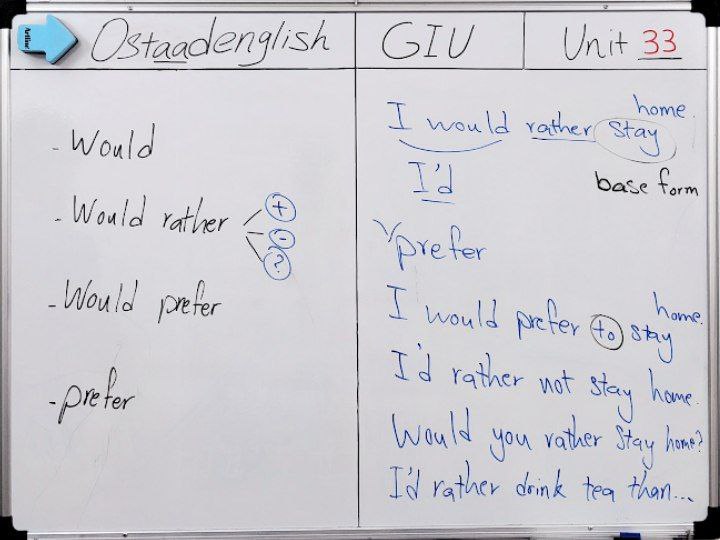 Ostaadenglish
GIU
Unit 33
- Would
- Would rather
+
-
?
- Would prefer
- prefer
I would rather stay home.
I'd
base form
prefer
I would prefer to stay home.
I'd rather not stay home.
Would you rather stay home?
I'd rather drink tea than...